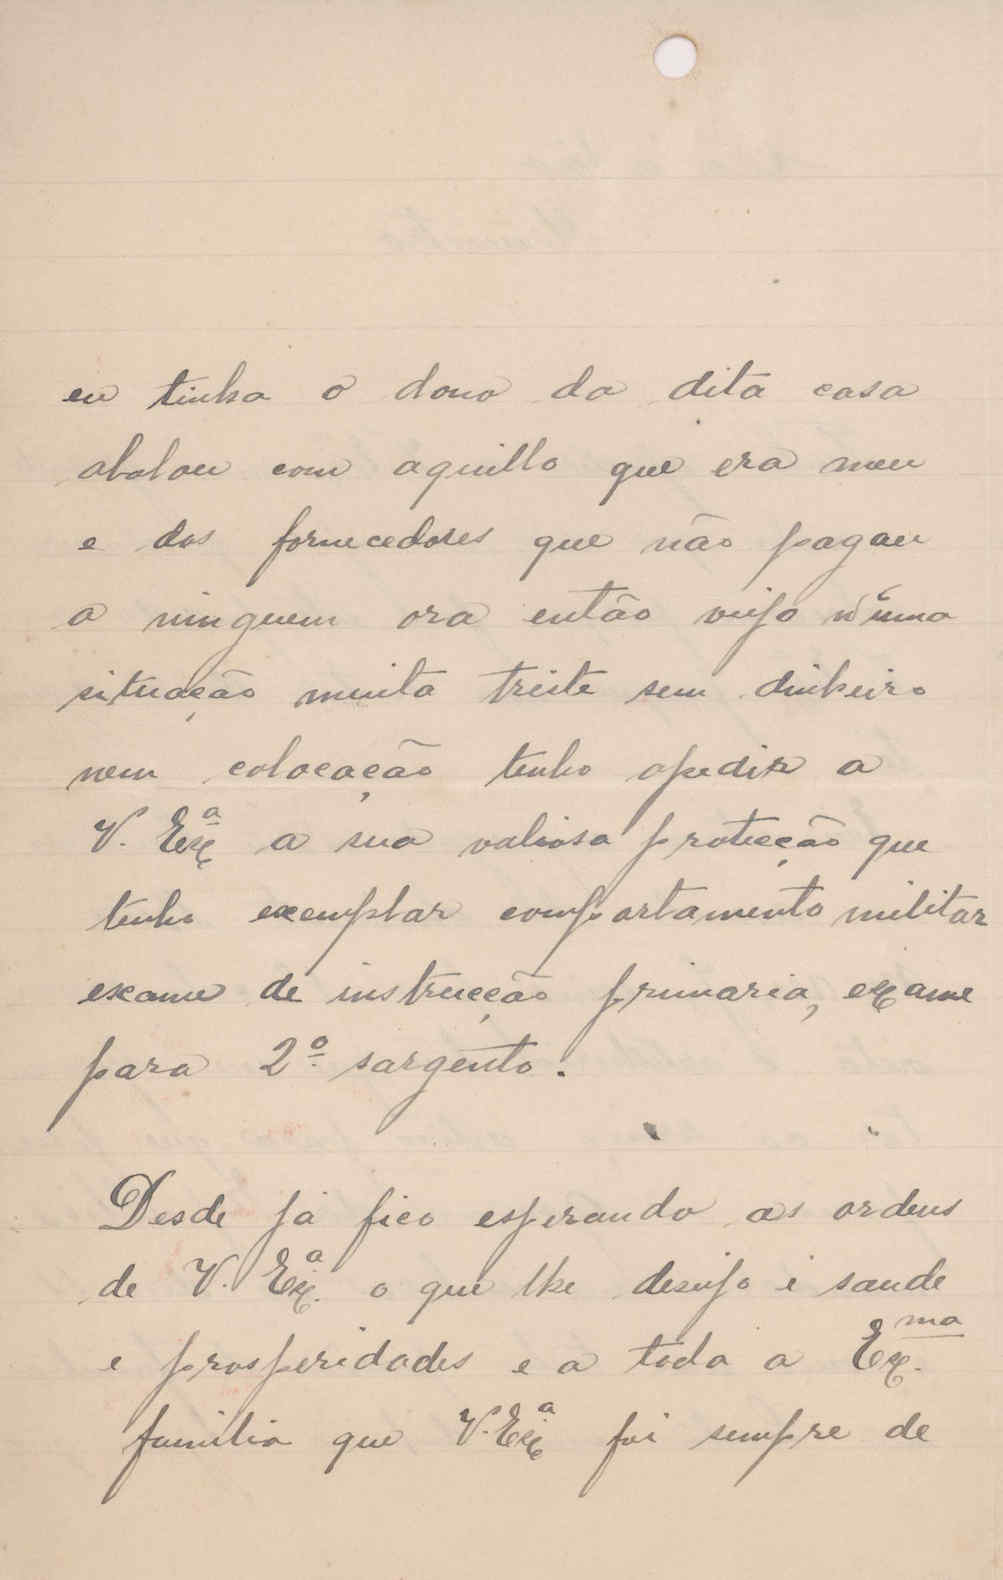 eu tinha o dono da dita casa
abalou com aquillo que era meu
e dos fornecedores que não pagou
a ninguem ora então vejo n'uma
situação muita treite sem dinheiro
nem colocação tenho apedir a
V. Exª a sua valiosa protecção que
tenho exemplar comportamento militar
exame de instrucção primaria, exame
para 2º sargento.
Desde já fico esperando as ordens
de V. Exª. o que lhe desejo é saude
e prosperidades e a toda a Exma.
familia que V. Exª foi sempre de